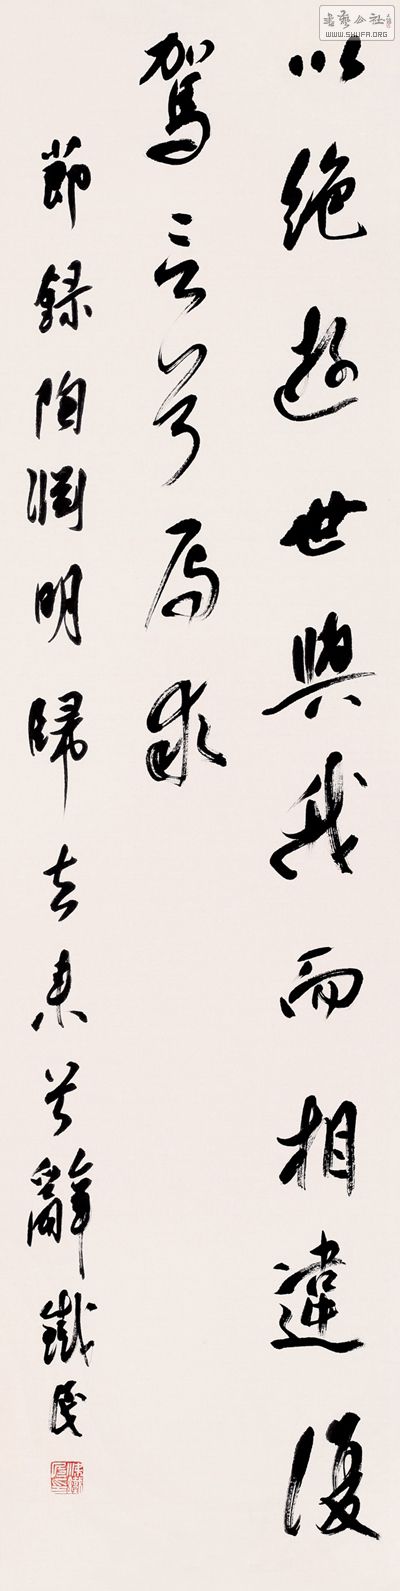 以絶遊世與我而相違復
駕言兮焉求
節録陶淵明歸去来兮辭鐵民
書藝公社
WWW.SHUFA.ORG